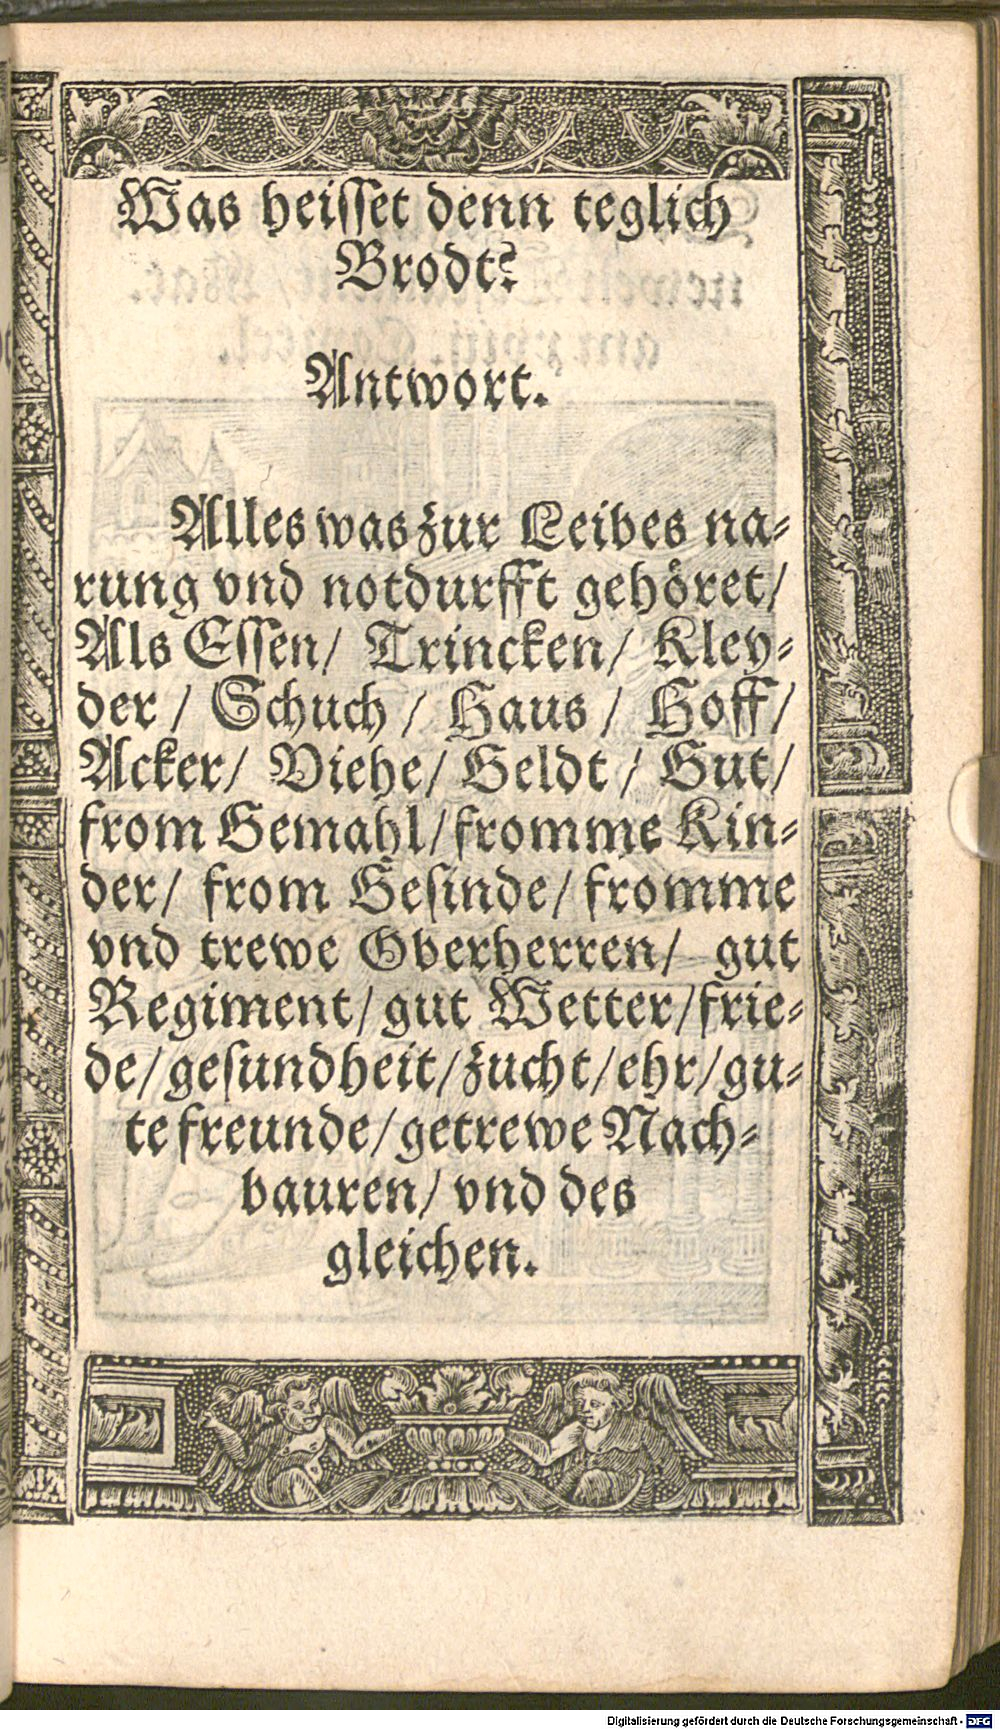 Was heisset denn teglich
Brodt?
Antwort.
Alles was zur Leibes na-
rung vnd notdurfft gehöret/
Als Essen/ Trincken/ Kley-
der / Schuch / Haus / Hoff/
Acker/ Viehe/ Geldt / Gut/
from Gemahl/ fromme Kin-
der/ from Gesinde/ fromme
vnd trewe Oberherren/ gut
Regiment/ gut Wetter/ frie-
de/ gesundheit/ zucht/ ehr/ gu-
te freunde/ getrewe Nach-
bauren/ vnd des
gleichen.
Digitalisierung gefördert durch die Deutsche Forschungsgemeinschaft - DFG